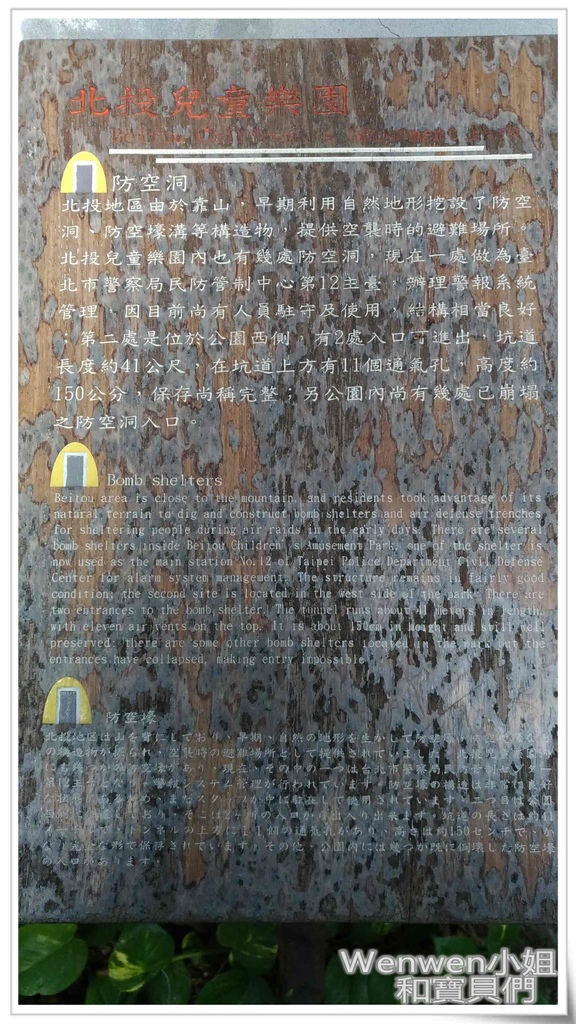 北投兒童樂園
Amusement Park
防空洞
北投地區由於靠山，早期利用自然地形挖設了防空
洞、防空壕溝等構造物，提供空襲時的避難場所。
北投兒童樂園內也有幾處防空洞，現在一處做為臺
北市警察局民防管制中心第12主臺，辦理警報系統
管理，因目前尚有人員駐守及使用，結構相當良好
；第二處是位於公園西側，有2處入口可進出，坑道
長度約41公尺，在坑道上方有11個通氣孔，高度約
150公分，保存尚稱完整；另公園內尚有幾處已崩塌
之防空洞入口。
Bomb shelters
Beitou area is close to the mountain, and residents took advantage of its
natural terrain to dig and construct bomb shelters and air defense trenches
for sheltering people during air raids in the early days. There are several
bomb shelters inside Beitou Children's Amusement Park, one of the shelter is
now used as the main station No.12 of Taipei Police Department Civil Defense
Center for alarm system management. The structure remains in fairly good
condition; the second site is located in the west side of the park. There are
two entrances to the bomb shelter. The tunnel runs about meters in length,
with eleven air vents on the top. It is about 150cm in height and still well
preserved; there are some other bomb shelters located in the park but the
entrances have collapsed, making entry impossible
防空壕
北投地区は山を背にしており、早期、自然の地形を生かして
の構造物が、空襲時の避難場所として提供されていました。
現在、その中の一つは台北市警察局
システム管理が行われています。防空壕の構造は
スタッフが中に駐在して使用されています。
り、そこは2ヶ所の入口から出入り出来ます。坑道の長さは約41
トンネルの上方に11個の通気孔があり、高さは約150センチで、か
な形で保存されています。その他、公園内には幾つか既に倒壊した防空壕
の入口があります。
Wenwen小姐
和寶貝們